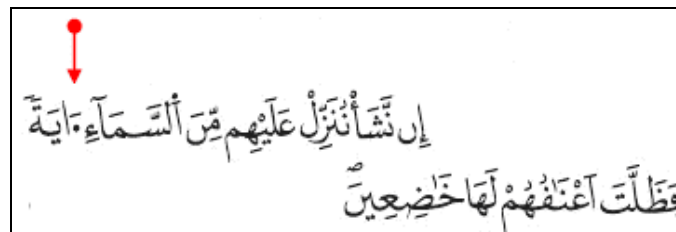 إِن نَّشَأْ نُنَزِّلْ عَلَيْهِم مِّنَ ٱلسَّمَآءِ •َايَةٗ
فَظَلَّتَ اَعْنَٰقُهُمْ لَهَا خَٰضِعِينَۖ